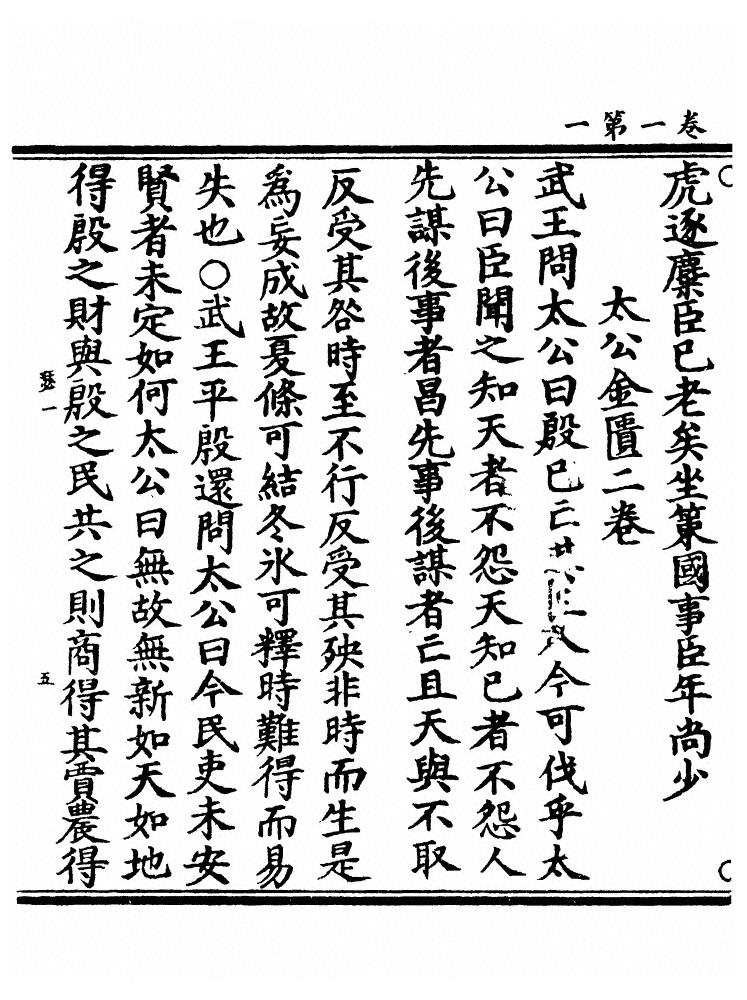 卷一第一
虎逐麋臣已老矣坐策國事臣年尚少
太公金匱二卷
武王問太公曰殷已亡人今可伐乎太
公曰臣聞之知天者不怨天知己者不怨人
先謀後事者昌先事後謀者亡且天與不取
反受其咎時至不行反受其殃非時而生是
爲妄成故夏條可結冬氷可釋時難得而易
失也○武王平殷還問太公曰今民吏未安
賢者未定如何太公曰無故無新如天如地
得殷之財與殷之民共之則商得其賈農得
一
五